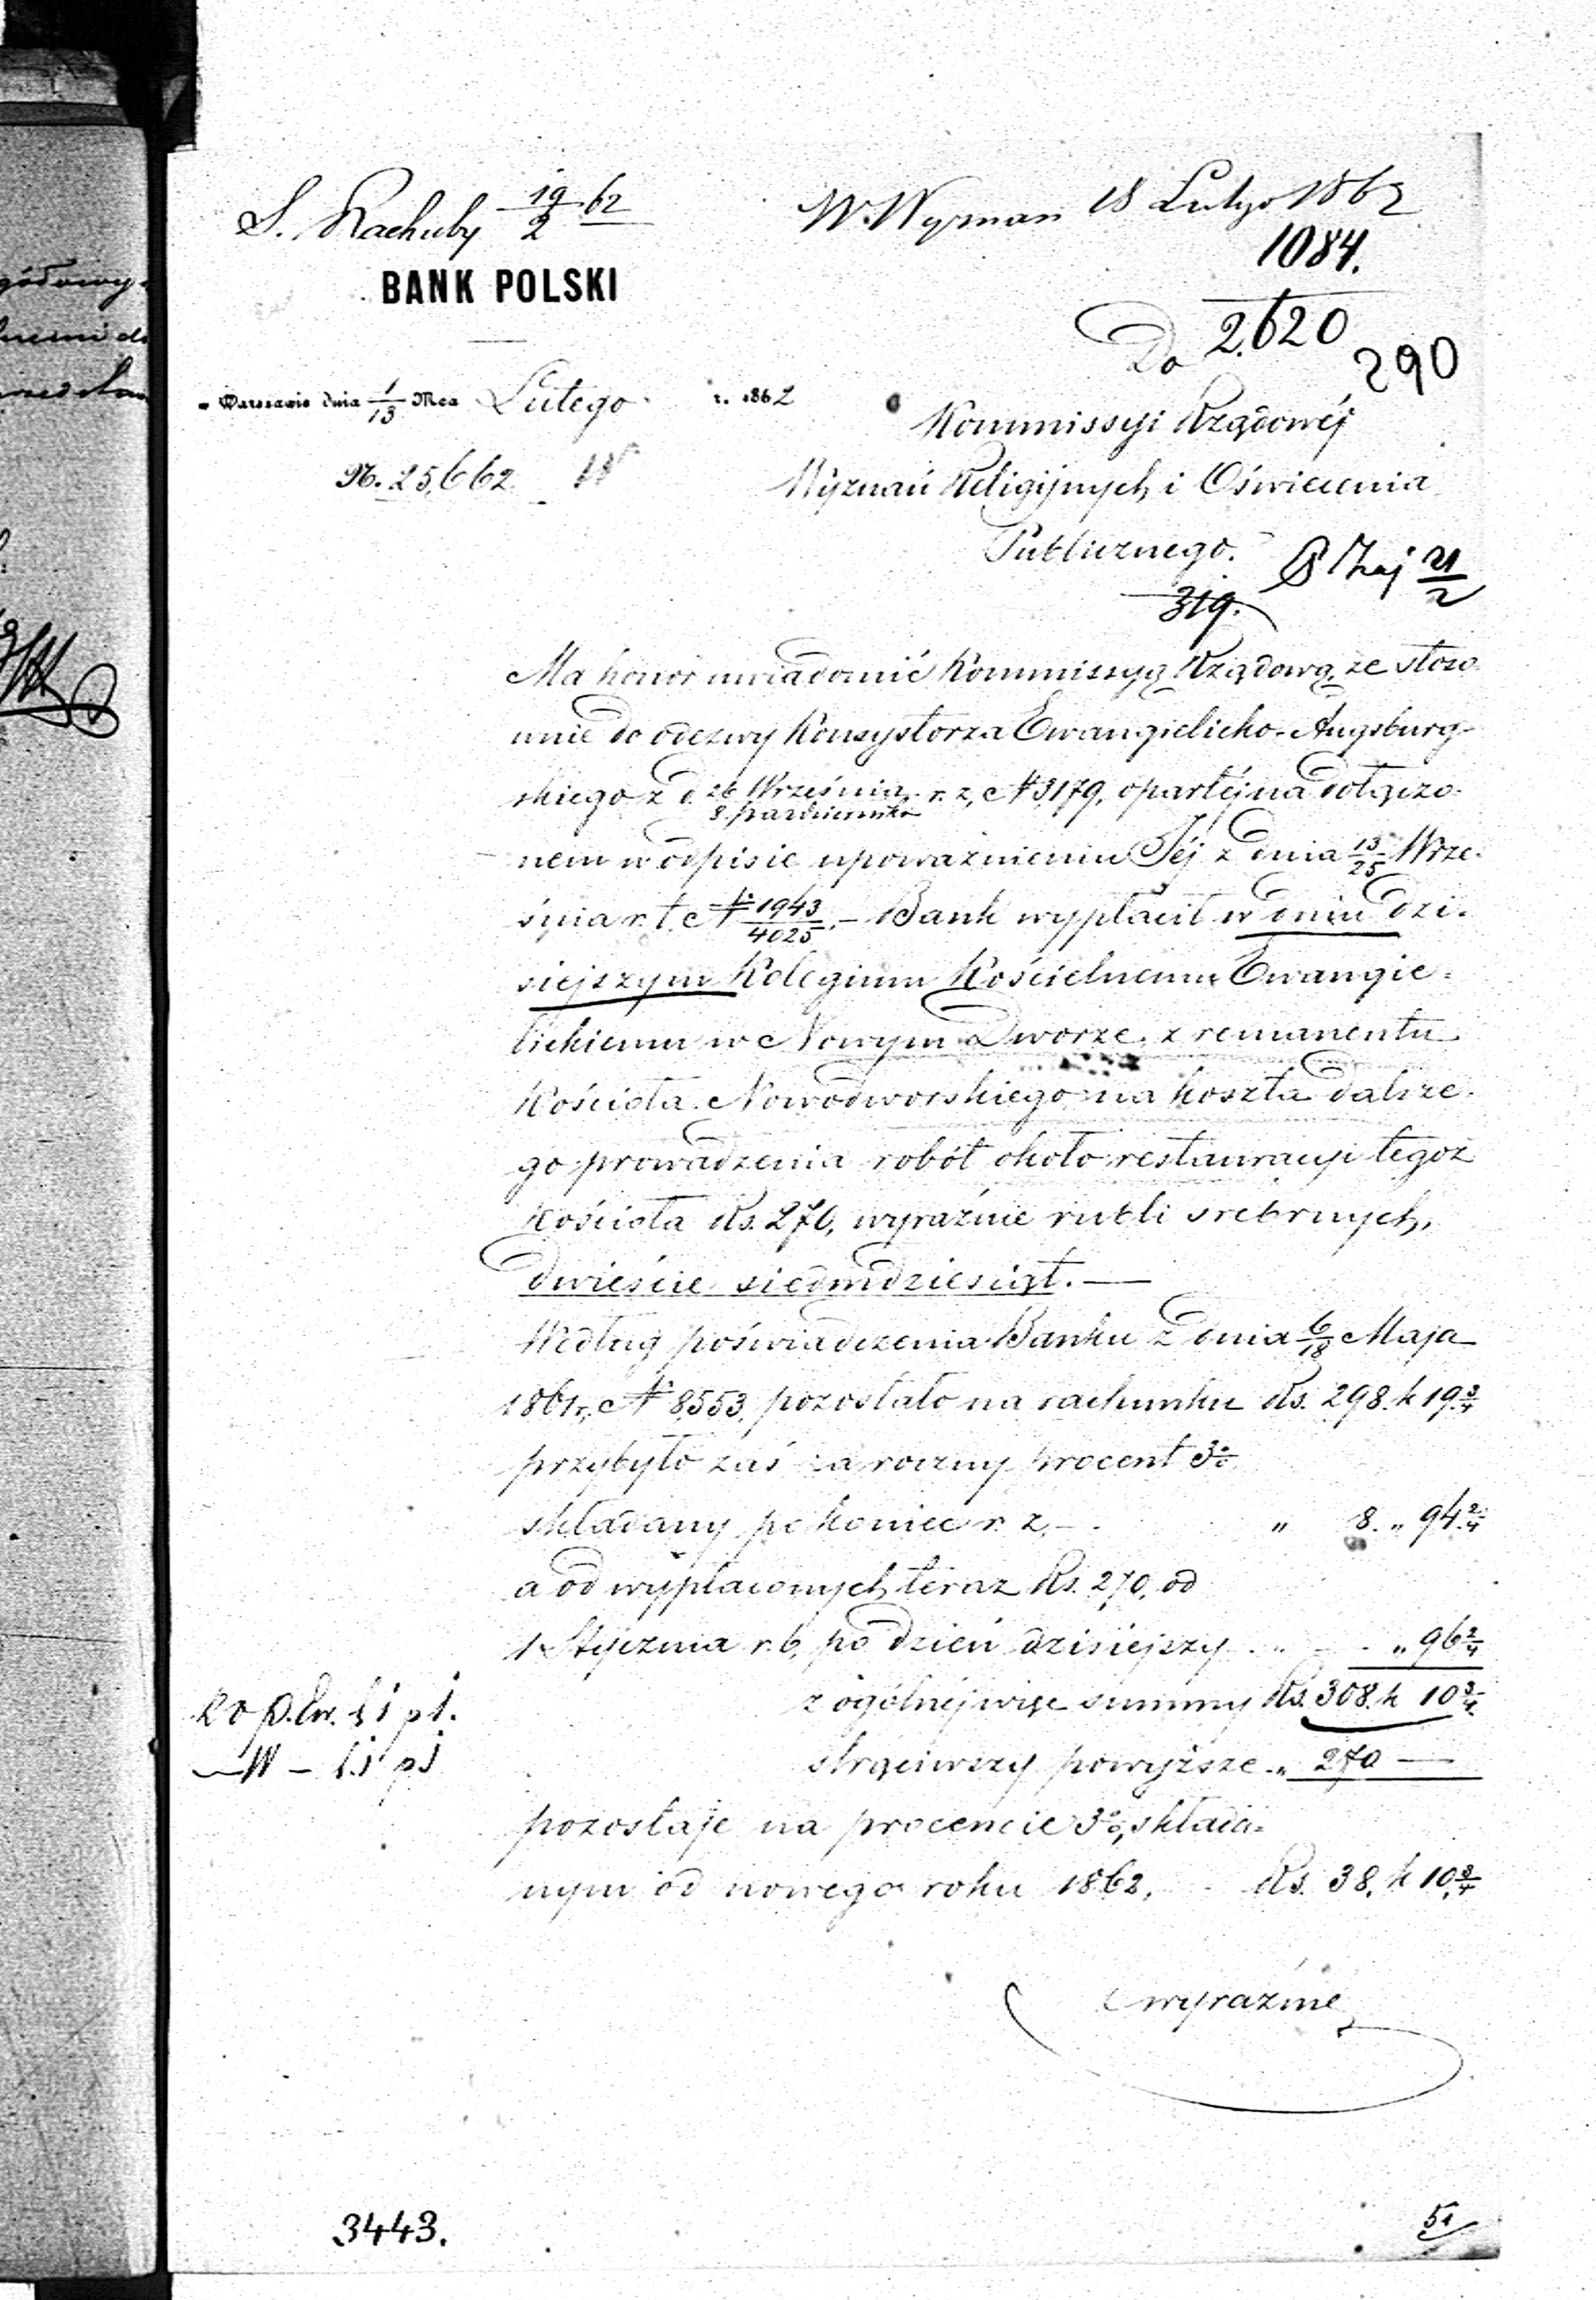 S. Rachuby 19/2 62
W. Wyznań 18 Lutego 1862
1084.
BANK POLSKI
Do 2.620
290
w Warszawie dnia 1/13 Mca Lutego r. 1862
Kommissyi Rządowéj
N. 25,662
Wyznań Religijnych i Oświecenia
Publicznego.
21/2
319.
Ma honor uwiadomić Kommissyą Rządową, że stoso-
wnie do odezwy Konsystorza Ewangielicko-Augsburg-
skiego z d. 26 Września / 8 Października r. z. N 3179, opartéj na dołączo-
nem w odpisie upoważnieniu Jéj z dnia 13/25 Wrze-
śnia r. t. N 1943/4025, – Bank wypłacił w dniu dzi-
siejszym Kolegium Kościelnemu Ewangie-
lickiemu w Nowym Dworze, z remanentu
Kościoła Nowodworskiego na koszta dalsze-
go prowadzenia robót około restauracyi tegoż
Kościoła Rs. 270, wyraźnie rubli srebrnych,
dwieście siedmdziesiąt. —
Według poświadczenia Banku z dnia 6/18 Maja
1861 r. N 8553, pozostało na rachunku Rs. 298. k 19 3/4
przybyło zaś za roczny procent 3%
składany po koniec r. z. – „ 8. „ 94 2/4
a od wypłaconych teraz Rs. 270, od
1 Stycznia r. b. po dzień dzisiejszy „ – „ 96 2/4
z ogólnéj więc summy Rs. 308. k 10 3/4
strąciwszy powyższe „ 270 —
pozostaje na procencie 3%, składa-
nym od nowego roku 1862, – Rs. 38. k 10 3/4
wyraźnie
3443.
51